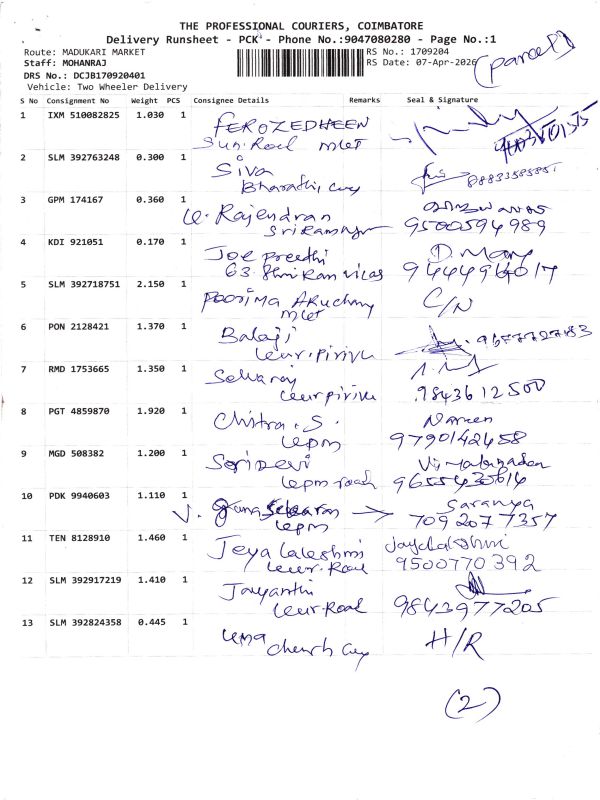 THE PROFESSIONAL COURIERS, COIMBATORE
Delivery Runsheet - PCK - Phone No.:9047080280 - Page No.:1
Route: MADUKARI MARKET
RS No.: 1709204
Staff: MOHANRAJ
RS Date: 07-Apr-2026
(parcel)
DRS No.: DCJB170920401
Vehicle: Two Wheeler Delivery
S No Consignment No Weight PCS Consignee Details Remarks Seal & Signature
1 IXM 510082825 1.030 1 FEROZEDHEEN
Mket
2 SLM 392763248 0.300 1 Siva
Bharathi
3 GPM 174167 0.360 1 Rajendran
9500594989
4 KDI 921051 0.170 1 Joe Preethi D. Mary
63
5 SLM 392718751 2.150 1 Poorima C/N
Mket
6 PON 2128421 1.370 1 Balaji
7 RMD 1753665 1.350 1 Selvaraj
9843612500
8 PGT 4859870 1.920 1 Chitra. S. Naveen
9790142658
9 MGD 508382 1.200 1 SoriDevi
road
10 PDK 9940603 1.110 1 V. Saranya
7092077357
11 TEN 8128910 1.460 1 Jeya
Road 9500770392
12 SLM 392917219 1.410 1 Jayanthi
Road 9843977205
13 SLM 392824358 0.445 1 Uma H/R
(2)